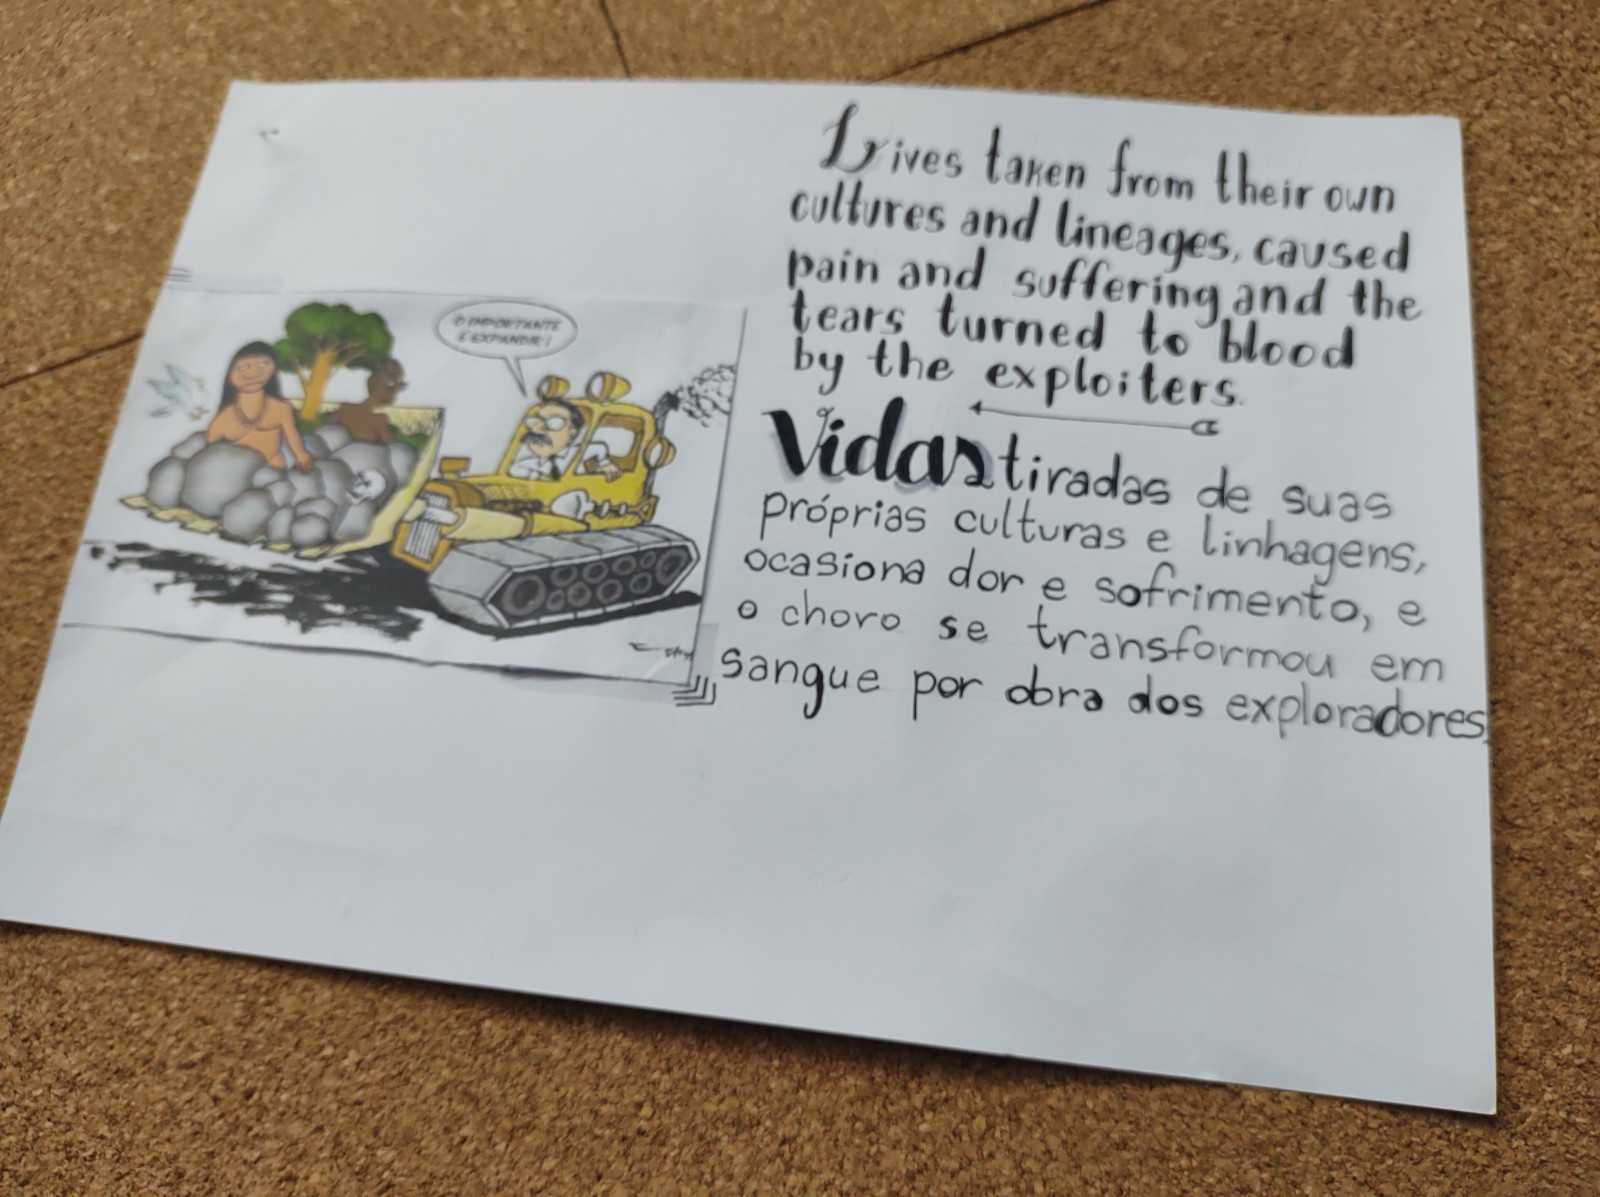 O IMPORTANTE
É EXPANDIR!
Lives taken from their own
cultures and lineages, caused
pain and suffering and the
tears turned to blood
by the exploiters.
Vidas tiradas de suas
próprias culturas e linhagens,
ocasiona dor e sofrimento, e
o choro se transformou em
sangue por obra dos exploradores.